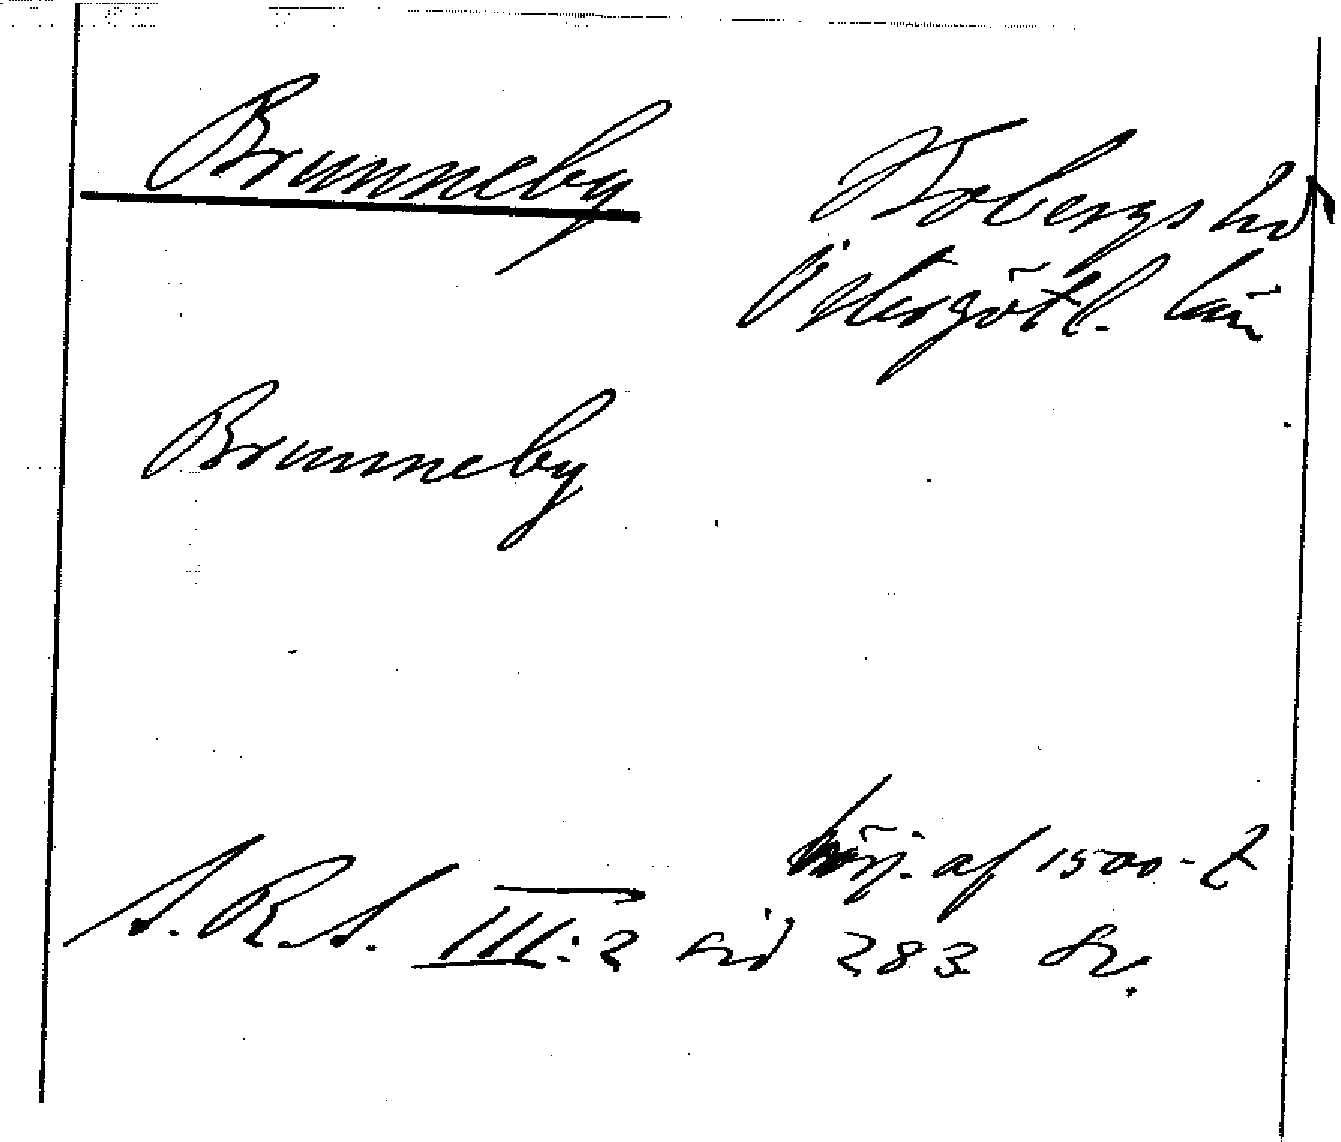 Brunneby Bobergs hd
Östergötl. län
Brunneby
börj. af 1500-t
S.R.S. III:2 sid 283 Sv.